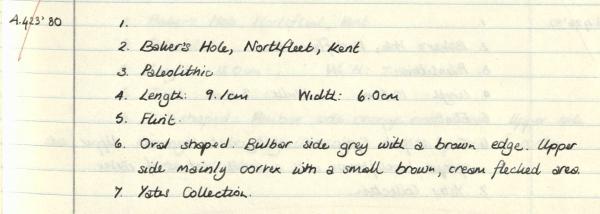 A.423'80 1.
2. Baker's Hole, Northfleet, Kent
3. Paleolithic
4. Length: 9.1cm Width: 6.0cm
5. Flint.
6. Oval shaped. Bulbar side grey with a brown edge. Upper
side mainly cortex with a small brown, cream flecked area.
7. Yates Collection.